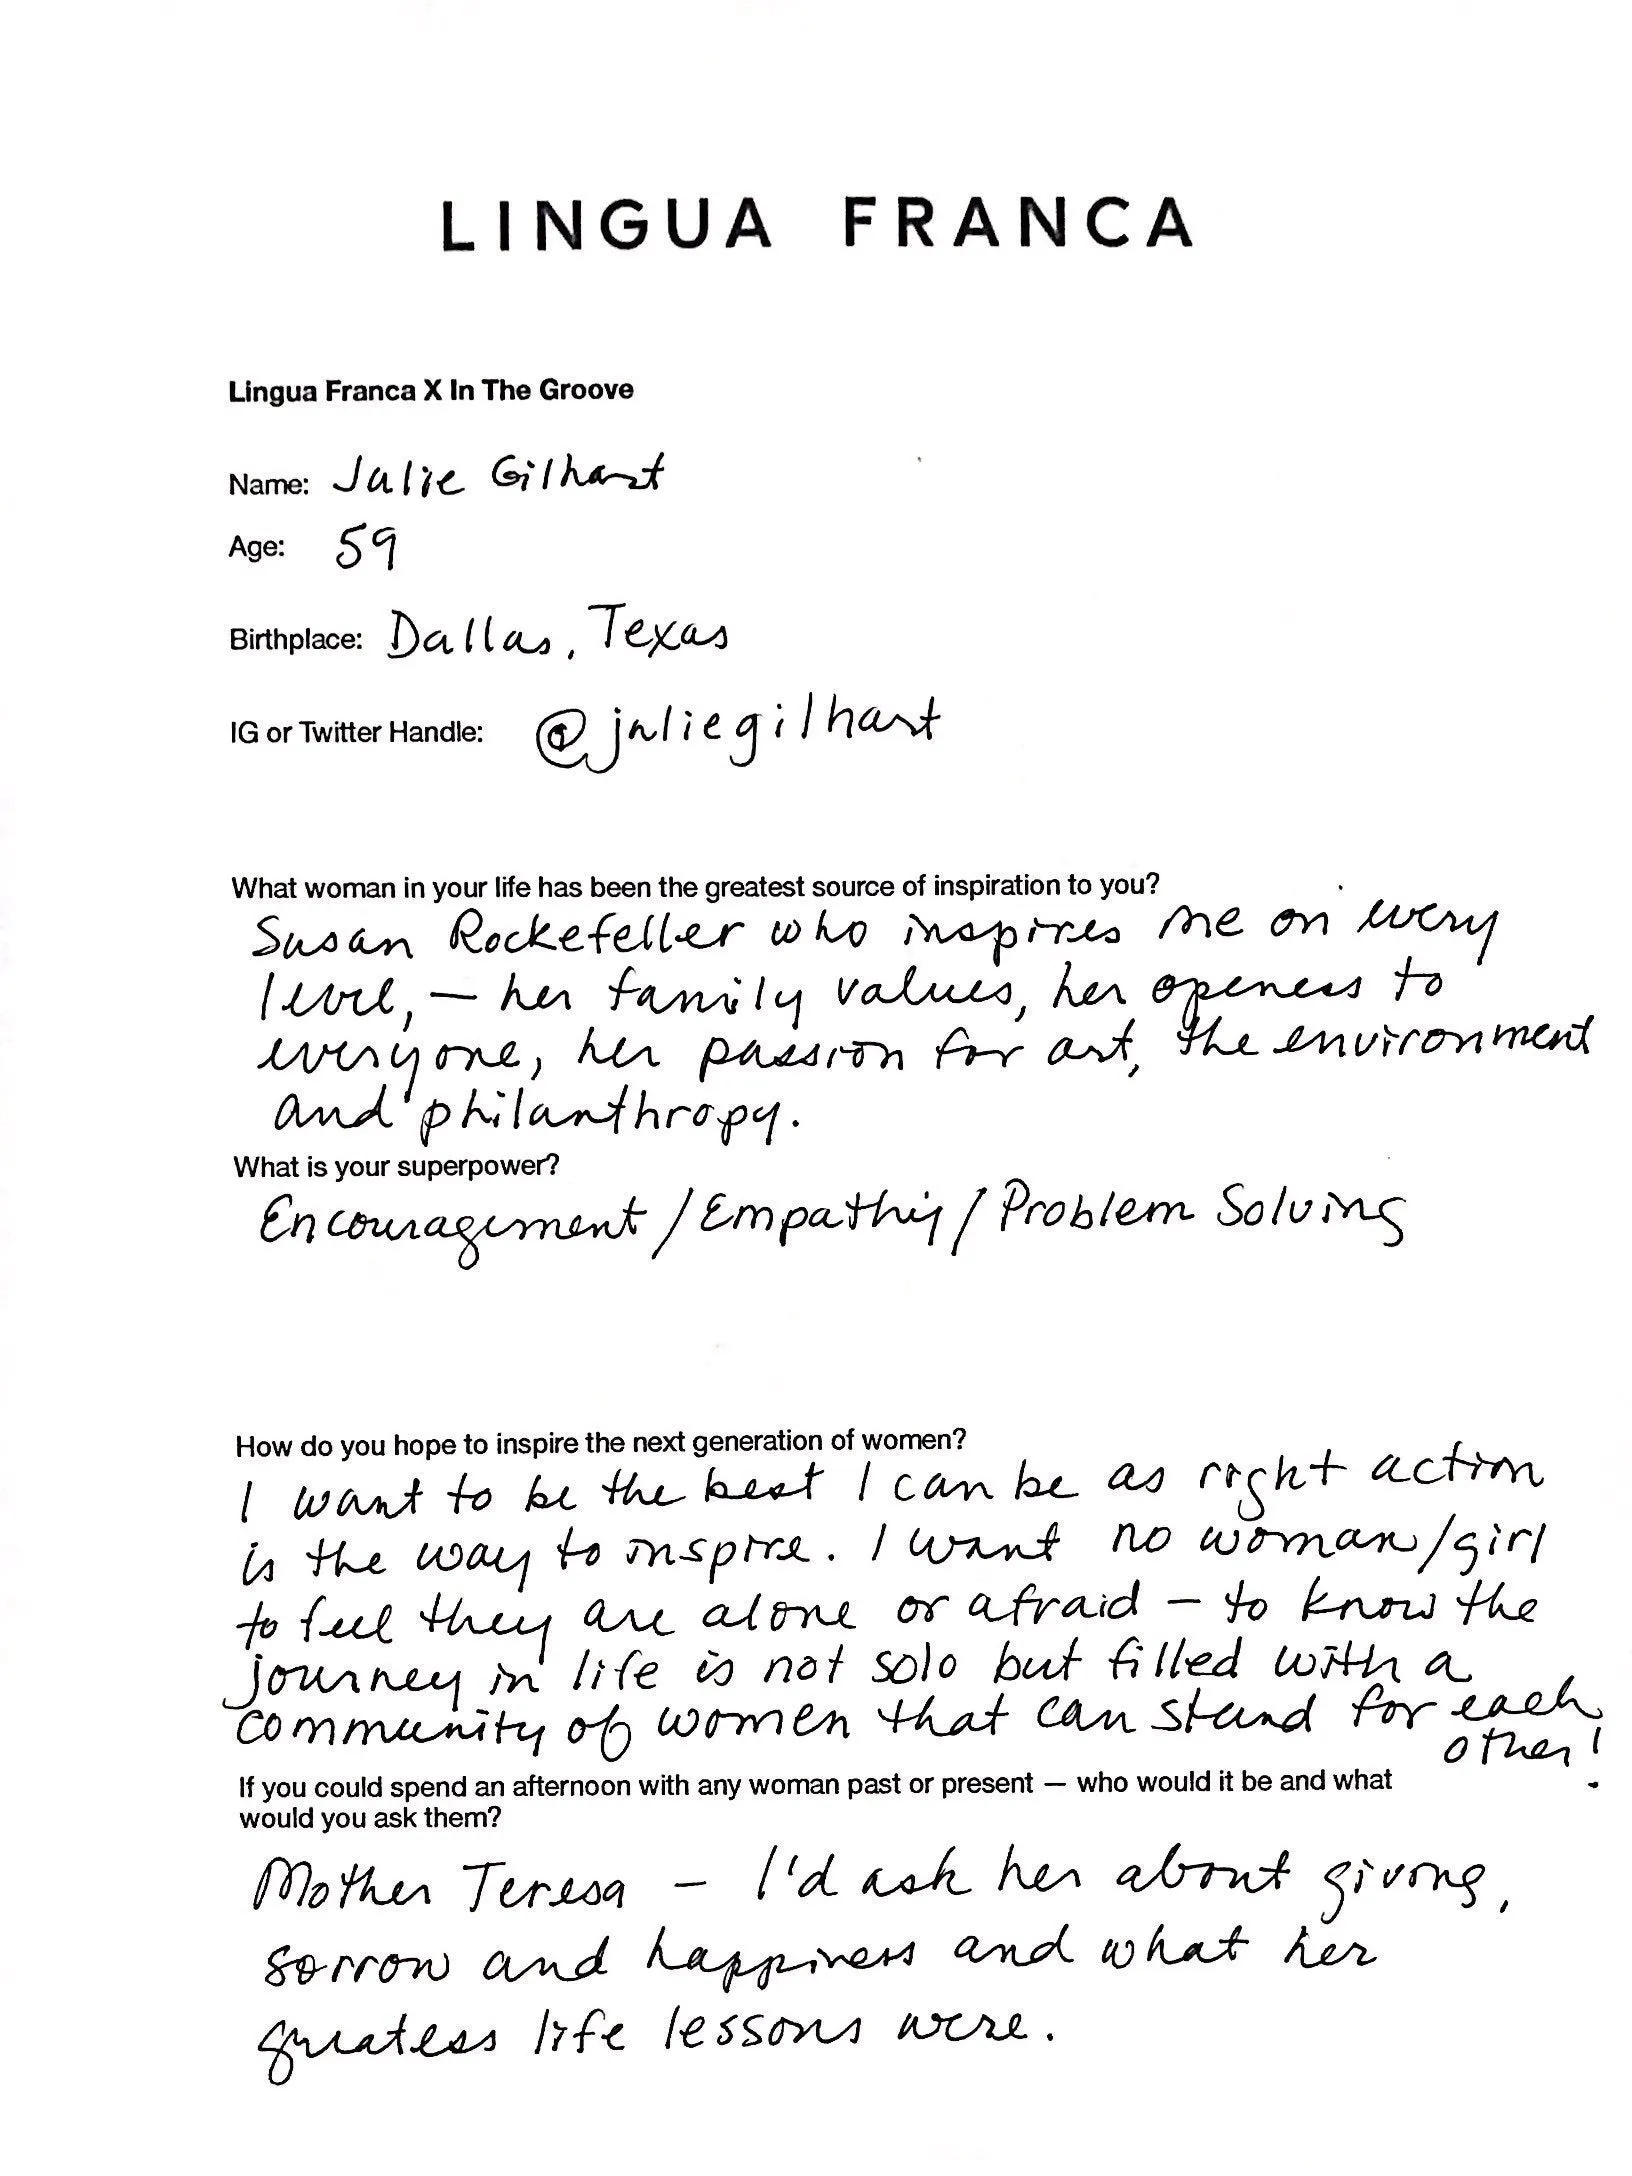 LINGUA FRANCA
Lingua Franca X In The Groove
Name: Julie Gilhart
Age: 59
Birthplace: Dallas, Texas
IG or Twitter Handle: @juliegilhart
What woman in your life has been the greatest source of inspiration to you?
Susan Rockefeller who inspires me on every
level, — her family values, her openess to
everyone, her passion for art, the environment
and philanthropy.
What is your superpower?
Encouragement / Empathy / Problem Solving
How do you hope to inspire the next generation of women?
I want to be the best I can be as right action
is the way to inspire. I want no woman/girl
to feel they are alone or afraid – to know the
journey in life is not solo but filled with a
community of women that can stand for each
other!
If you could spend an afternoon with any woman past or present — who would it be and what
would you ask them?
Mother Teresa – I'd ask her about giving,
sorrow and happiness and what her
greatess life lessons were.